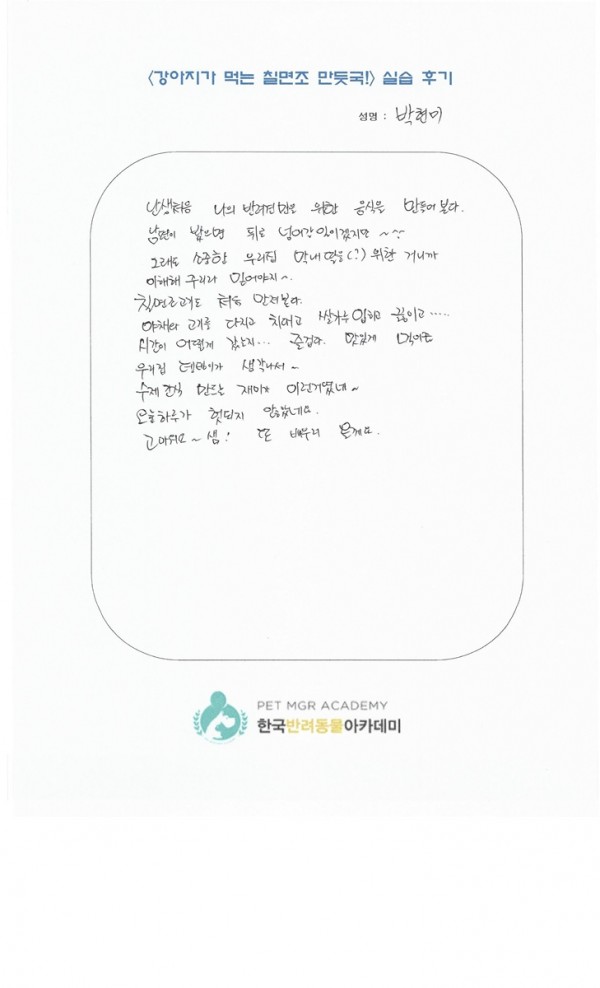 <강아지가 먹는 칠면조 만듯국!> 실습 후기
성명 : 박현미
난생처음 나의 반려견만을 위한 음식을 만들어 본다.
남편이 봤으면 뒤로 넘어갈 일이겠지만 ~^^
그래도 소중한 우리집 막내딸을(?) 위한 거니까
이해해 주리라 믿어야지~.
칠면조고기도 처음 만져본다.
야채와 고기를 다지고 치대고 쌀가루 입히고 끓이고 .....
시간이 어떻게 갔는지... 즐겁다. 맛있게 먹어줄
우리집 생각나서~
수제간식 만드는 재미가 이런거였네~
오늘하루가 헛되지 않았네요.
고마워요~ 샘! 또 배우러 올게요.
PET MGR ACADEMY
한국반려동물아카데미